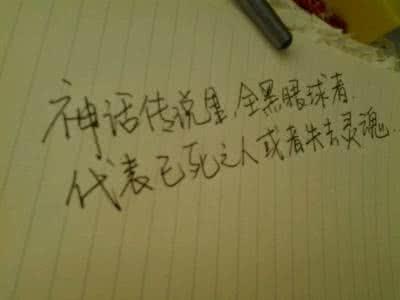 神话传说里,全黑眼球者.
代表已死之人或者失去灵魂...